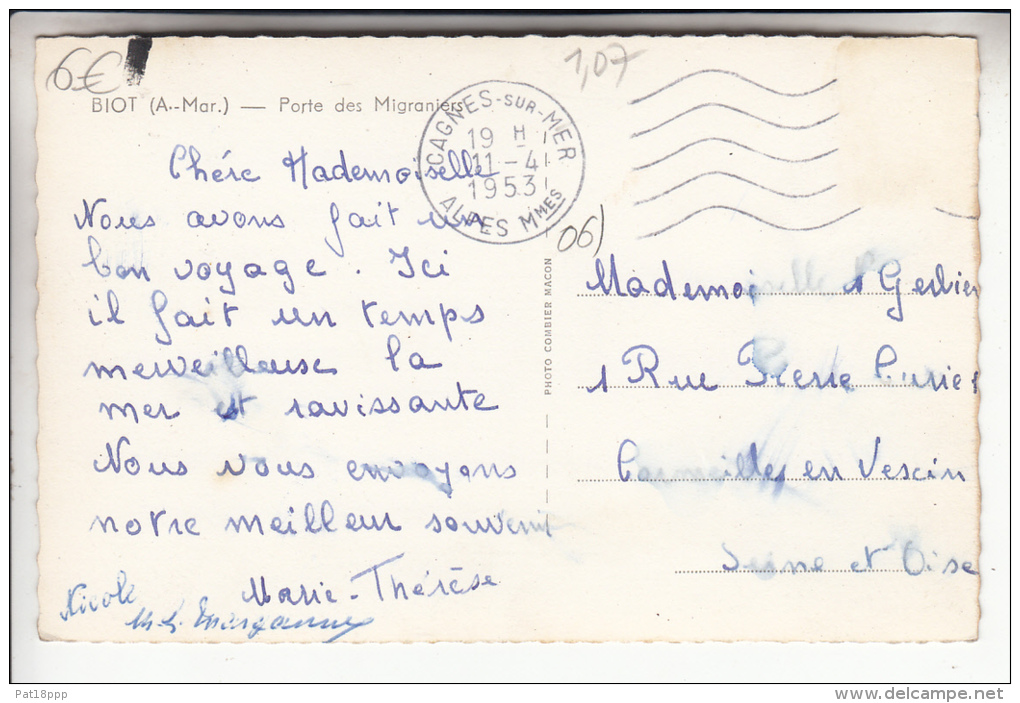 6€
1,07
BIOT (A.-Mar.) — Porte des Migraniers
CAGNES-SUR-MER
19 H
11-4
1953
ALPES MMES
06)
Chére Mademoiselle
Nous avons fait un
bon voyage. Ici
il fait un temps
merveilleuse la
mer est ravissante
Nous vous envoyons
notre meilleur souvenir
Marie-Thérèse
Nicole
PHOTO COMBIER MACON
Mademoiselle Gerbier
1 Rue Pierre Curie
Cormeilles en Vexin
Seine et Oise
Pat18ppp
www.delcampe.net